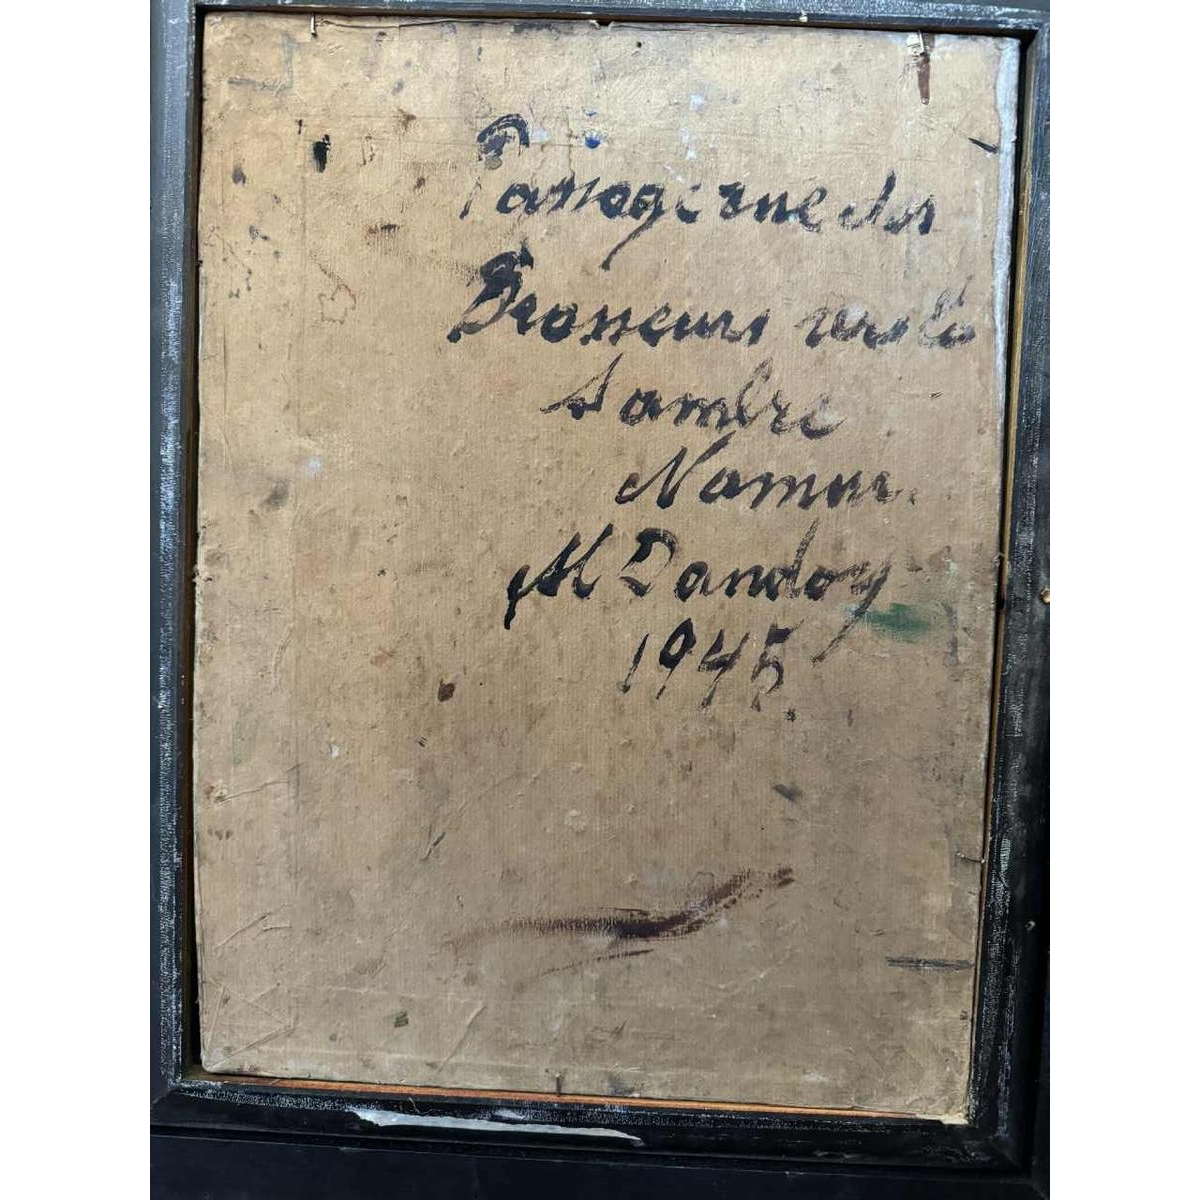 Passage rue des
Brasseurs vers la
Sambre
Namur.
Al Dandoy
1945.